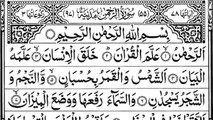 سُوْرَةُ الرَّحْمٰنِ مَدَنِيَّةٌ
بِسْمِ اللّٰهِ الرَّحْمٰنِ الرَّحِيْمِ
اَلرَّحْمٰنُ عَلَّمَ الْقُرْاٰنَ خَلَقَ الْاِنْسَانَ عَلَّمَهُ
الْبَيَانَ اَلشَّمْسُ وَالْقَمَرُ بِحُسْبَانٍ وَّالنَّجْمُ وَ
الشَّجَرُ يَسْجُدٰنِ وَالسَّمَآءَ رَفَعَهَا وَوَضَعَ الْمِيْزَانَ